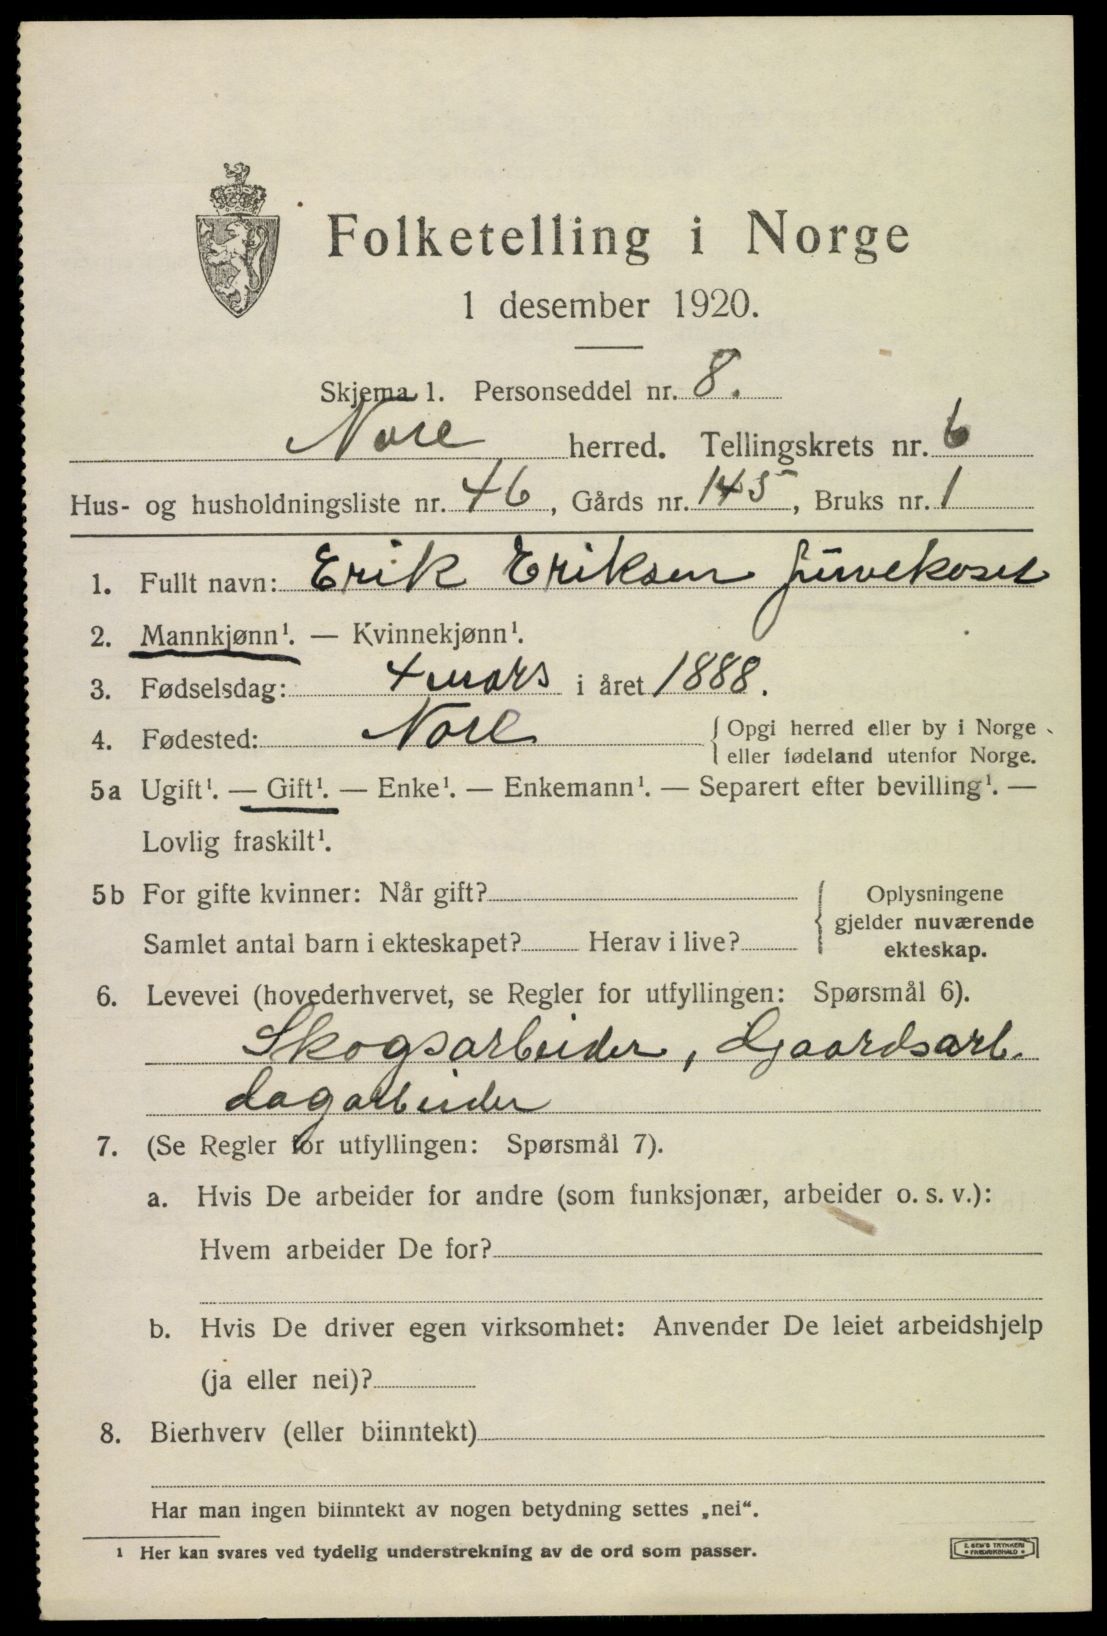 Folketelling i Norge
1 desember 1920.
Skjema 1. Personseddel nr. 8.
Nore herred. Tellingskrets nr. 6
Hus- og husholdningsliste nr. 46, Gårds nr. 145, Bruks nr. 1
1. Fullt navn: Erik Eriksen Juvekoset
2. Mannkjønn¹. — Kvinnekjønn¹.
3. Fødselsdag: 4 mars i året 1888.
4. Fødested: Nore { Opgi herred eller by i Norge
eller fødeland utenfor Norge.
5a Ugift¹. — Gift¹. — Enke¹. — Enkemann¹. — Separert efter bevilling¹. —
Lovlig fraskilt¹.
5b For gifte kvinner: Når gift?
Samlet antal barn i ekteskapet? Herav i live?
Oplysningene
gjelder nuværende
ekteskap.
6. Levevei (hovederhvervet, se Regler for utfyllingen: Spørsmål 6).
Skogsarbeider, Gaardsarb.
dagarbeider
7. (Se Regler for utfyllingen: Spørsmål 7).
a. Hvis De arbeider for andre (som funksjonær, arbeider o. s. v.):
Hvem arbeider De for?
b. Hvis De driver egen virksomhet: Anvender De leiet arbeidshjelp
(ja eller nei)?
8. Bierhverv (eller biinntekt)
Har man ingen biinntekt av nogen betydning settes „nei“.
¹ Her kan svares ved tydelig understrekning av de ord som passer.
E. SEM'S TRYKKERI
FREDRIKSHALD